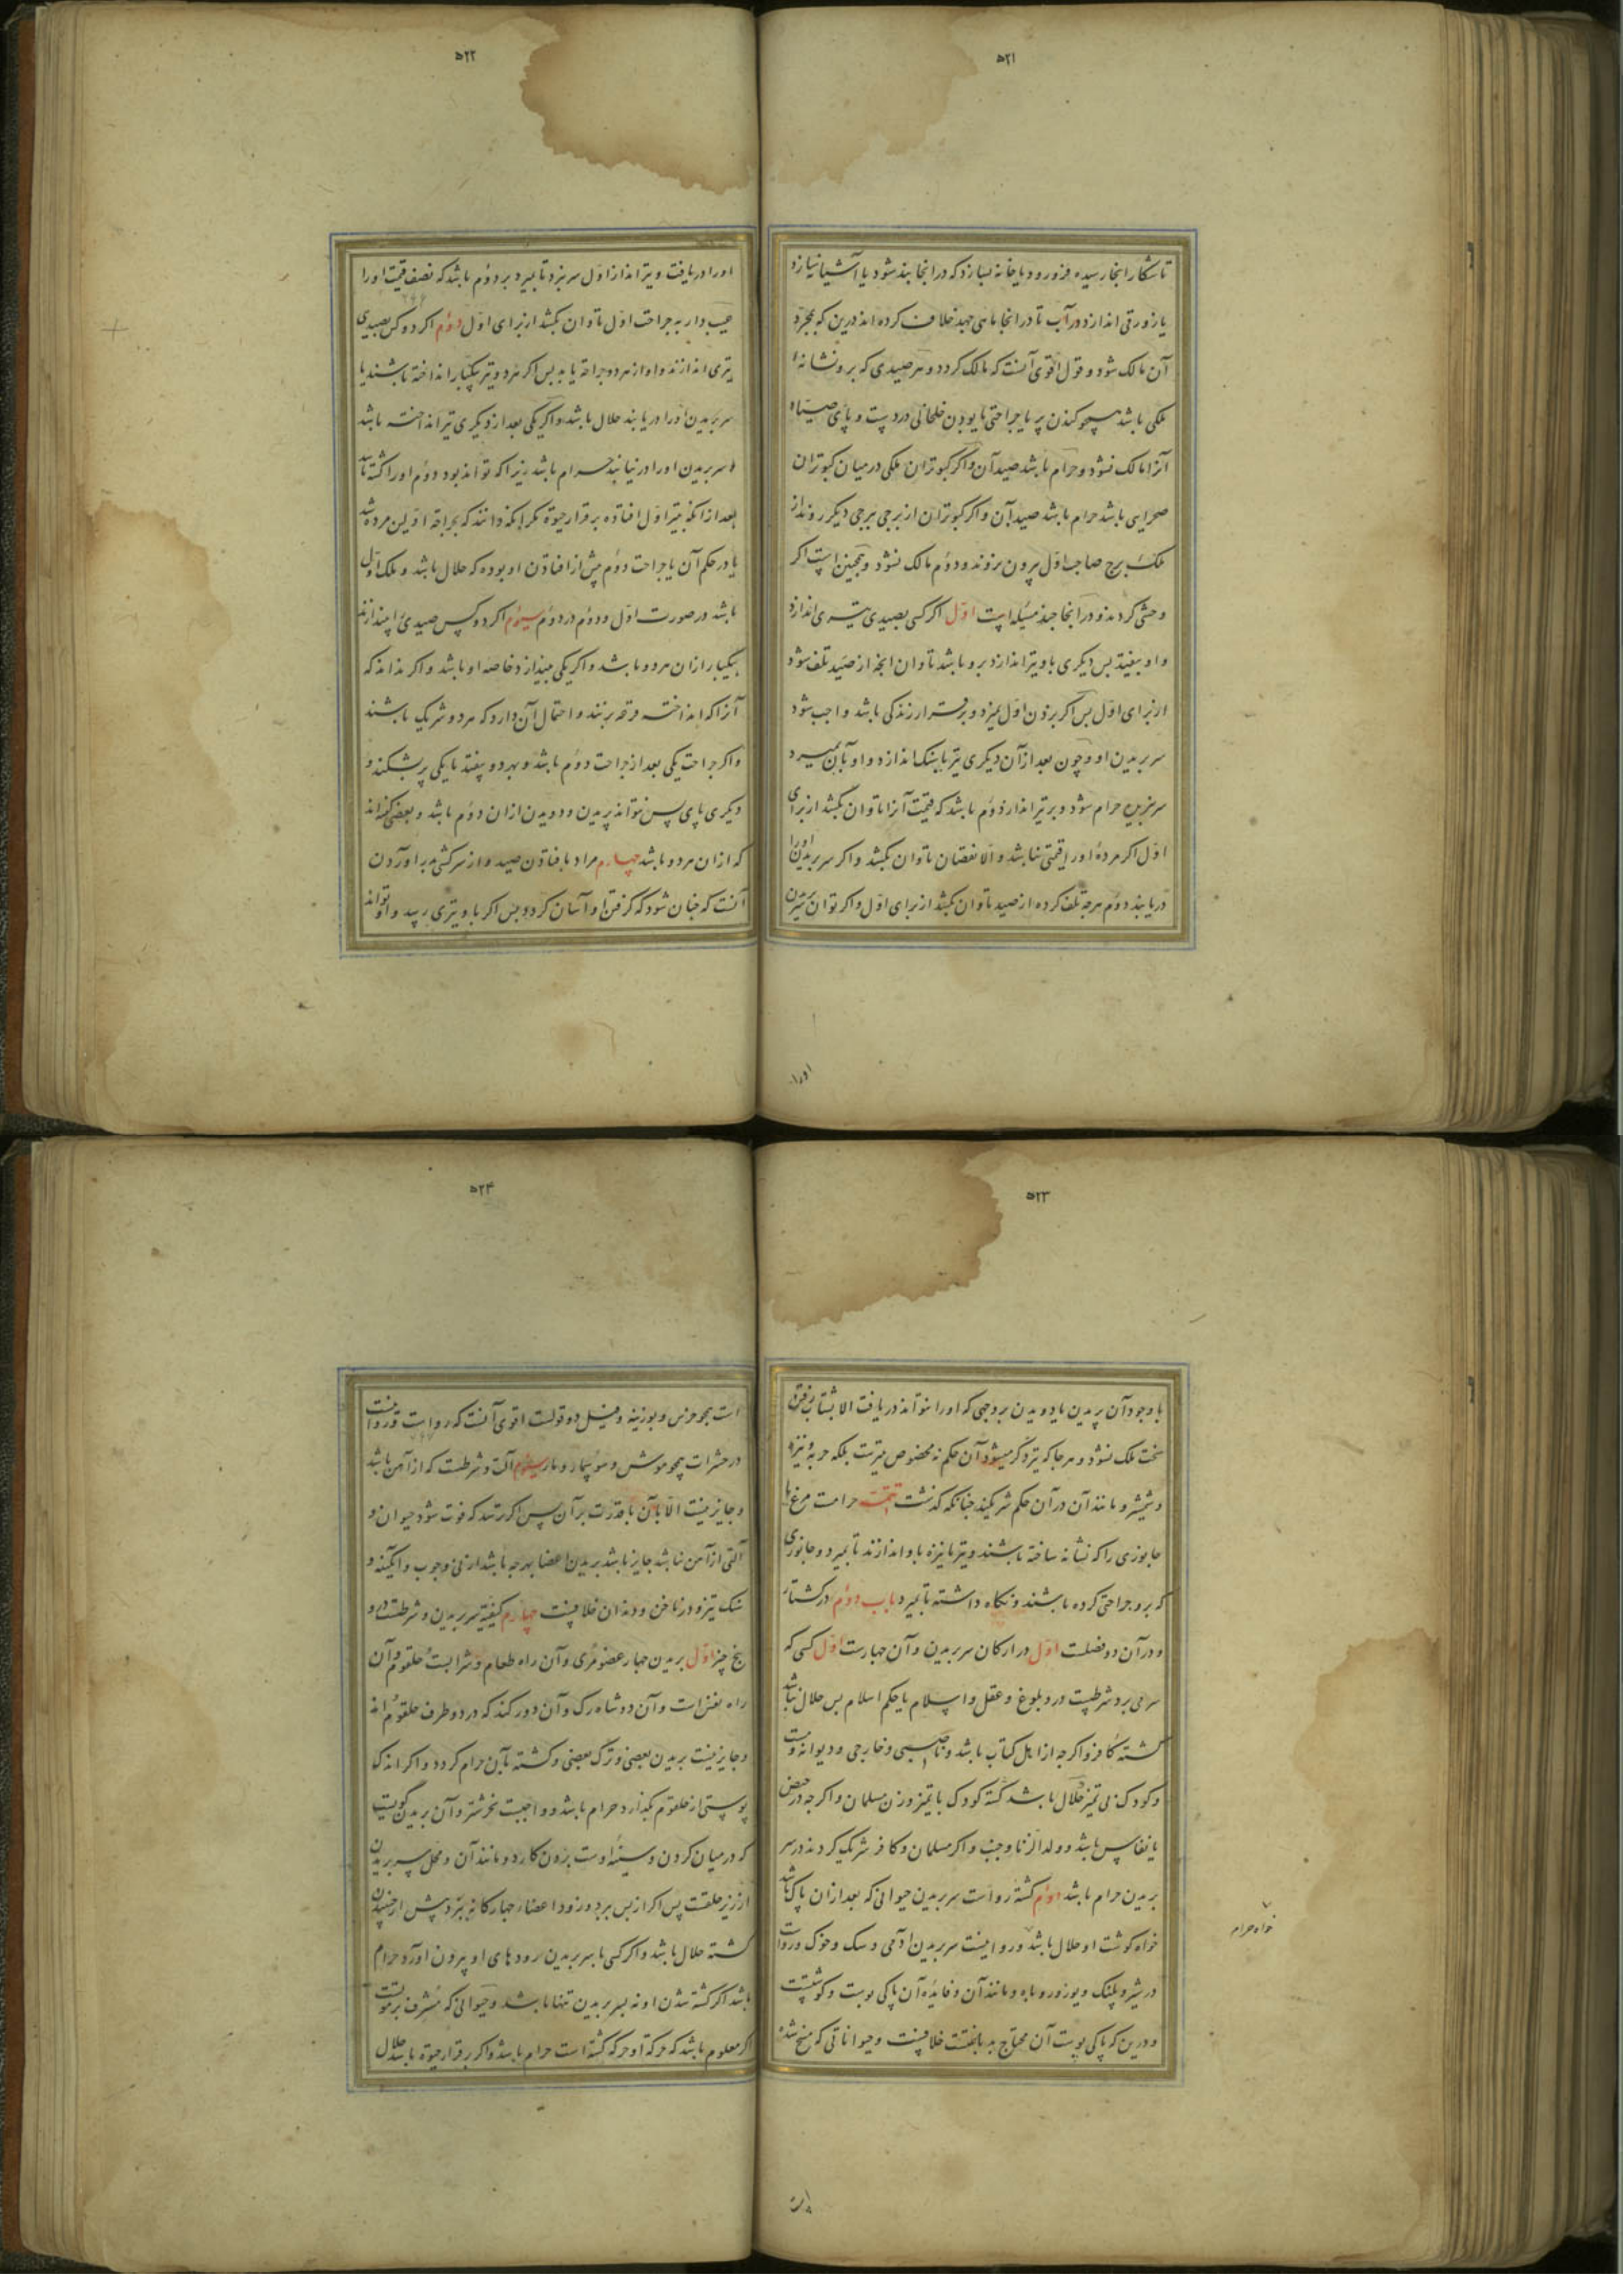 ۵۲۱
تا شکار انجا رسیده فرو رود یا خانه بسازد که در انجا بند شود یا آشیانه سازد
یا زورقی اندازد در آب تا در انجا ماهی جهد خلاف کرده اند درین که بمجرّد
آن مالک شود و قول اقوی آنست که مالک کردد و هر صیدی که برو نشانه
ملکی باشد همچو کندن پر یا جراحتی یا بودن خلخالی در دست و پای صیاد
آنرا مالک نشود و حرام باشد صید آن و اکر کبوتران ملکی در میان کبوتران
صحرایی باشد حرام باشد صید آن و اکر کبوتران از برجی ببرجی دیکر روند از
ملک برج صاحب اوّل بیرون نروند و دوّم مالک نشود و همچنین است اکر
وحشی کردند و در انجا چند مسئله است اوّل اکر کسی بصیدی تیری اندازد
و او بیفتد بس دیکری باو تیر اندازد برو باشد تاوان انچه از صید تلف شود
از برای اوّل بس اکر بزدن اوّل بمیرد و برقرار زندکی باشد واجب شود
سر بریدن او و چون بعد از آن دیکری تیر یا سنک اندازد و او بآن بمیرد
سر بریده حرام شود و بر تیر انداز دوّم باشد که قیمت آنرا تاوان بکشد از برای
اوّل اکر مردهٔ او را قیمتی نباشد و الّا نقصان تاوان بکشد و اکر سر بریدن او را
دریابند دوّم هرچه تلف کرده از صید تاوان بکشد از برای اوّل و اکر توان سر بریدن
اورا
۵۲۲
اورا دریافت و تیرانداز اوّل سر نبرد تا بمیرد بر دوّم باشد که نصف قیمت اورا
عیب دار به جراحت اوّل تاوان بکشد از برای اوّل دوّم اکر دو کس بصیدی
تیری اندازند و او از هر دو جراحت یابد بس اکر هر دو تیر یکبار انداخته باشند یا
سر بریدن او را دریابند حلال باشد و اکر یکی بعد از دیکری تیر انداخته باشد
و سر بریدن اورا درنیابند حرام باشد زیرا که تواند بود دوّم اورا کشته باشد
بعد از انکه بتیر اوّل افتاده برقرار حیوة مکر انکه دانند که بجراحت اوّلین مرده شد
یا در حکم آن یا جراحت دوّم پیش از افتادن او بوده که حلال باشد و ملک اوّل
باشد در صورت اوّل و دوّم در دوّم سیوّم اکر دو کس صیدی را بیندازند
بیکبار از ان هر دو باشد و اکر یکی بیندازد خاصه او باشد و اکر ندانند که
آنرا که انداخته قرعه زنند و احتمال آن دارد که هر دو شریک باشند
و اکر جراحت یکی بعد از جراحت دوّم باشد و بهر دو بیفتد یا یکی پر بشکند و
دیکری پای پس نتواند پریدن و دویدن از ان دوّم باشد و بعضی کفته اند
که از ان هر دو باشد چهارم مراد بافتادن صید و از سرکشی برآوردن
آنست که چنان شود که کرفتن او آسان کردد بس اکر باو تیری رسید و او تواند
۵۲۳
با وجود آن پریدن یا دویدن بر وجهی که او را نتواند دریافت الا بشتاب رفتن
سخت ملک نشود و هر جا که تیر ذکر میشود آن حکم نه مخصوص تیرست بلکه حربه و نیزه
و شمشیر و مانند آن در آن حکم شریکند چنانکه کذشت تتمّه حرامست مرغ یا
جانوری را که نشانه ساخته باشند و تیر یا نیزه باو اندازند تا بمیرد و جانوری
که برو جراحتی کرده باشند و نکاه داشته تا بمیرد باب دوّم در کشتار
و در آن دو فصلست اوّل در ارکان سر بریدن و آن چهارست اوّل کسی که
سر می برد شرطست درو بلوغ و عقل و اسلام یا حکم اسلام بس حلال نباشد
کشتهٔ کافر و اکرچه از اهل کتاب باشد و ناصبی و خارجی و دیوانه و مست
و کودک بی تمیز حلال باشد کشته کودک با تمیز و زن مسلمان و اکرچه در حیض
یا نفاس باشد و ولد الزنا و جنب و اکر مسلمان و کافر شریک کردند در سر
بریدن حرام باشد دوّم کشته رواست سر بریدن حیوانی که بعد از ان پاک باشد
خواه کوشت او حلال باشد و روا نیست سر بریدن آدمی و سک و خوک و رواست
خواه حرام
در شیر و پلنک و یوز و روباه و مانند آن و فایده آن پاکی پوست و کوشتست
و درین که پاکی پوست آن محتاج بدباغتست خلافیست و حیواناتی که مسخ شده
است
۵۲۴
است همچو خرس و بوزینه و فیل دو قولست اقوی آنست که رواست و روا نیست
در حشرات همچو موش و سوسمار و مار سیوّم آلت و شرطست که از آهن باشد
و جایز نیست الّا بآن با قدرت بر آن پس اکر ترسد که فوت شود حیوان و
آلتی از آهن نباشد جایز باشد بریدن اعضا بهرچه باشد از نی و چوب و آبکینه و
سنک تیز و در ناخن و دندان خلافیست چهارم کیفیّت سر بریدن و شرطست درو
پنج چیز اوّل بریدن چهار عضو مری و آن راه طعام و شرابست حلقوم و آن
راه نفس است و آن دو شاه رک و آن دو رکند که در دو طرف حلقوم اند
و جایز نیست بریدن بعضی و ترک بعضی و کشته بآن حرام کردد و اکر اندک
پوستی از حلقوم بکذارد حرام باشد و واجبست نحر شتر و آن بریدن کویست
که در میان کردن و سینهٔ اوست بزدن کارد و مانند آن و محل سر بریدن
از زیر حلقست پس اکر از پس برد و زود اعضا چهارکانه ببرد پیش از جنبیدن
کشته حلال باشد و اکر کسی با سر بریدن رودهای او بیرون اورد حرام
باشد اکر کشته شدن او نه بسر بریدن تنها باشد و حیوانی که مشرف بر موتست
اکر معلوم باشد که حرکت او حرکت کشته است حرام باشد و اکر برقرار حیوة باشد حلال